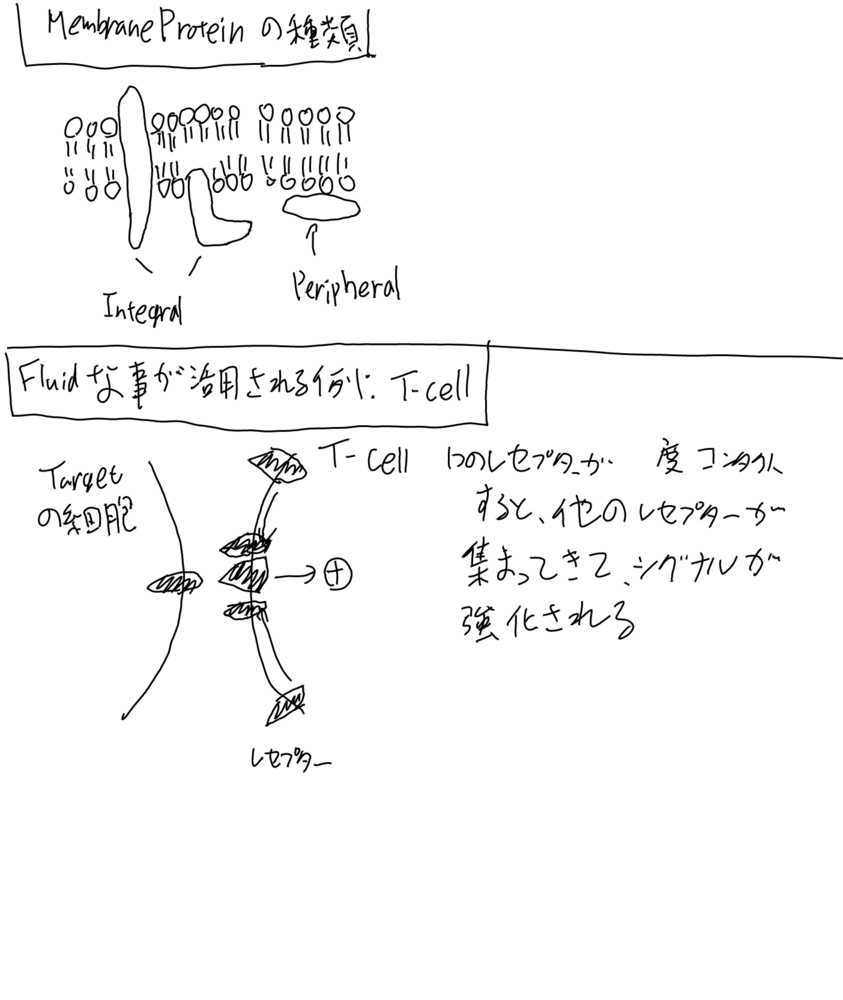 Membrane Protein の種類
Integral
Peripheral
Fluid な事が活用される例に. T-cell
Target
の細胞
T-cell
1つのレセプターが 度コンタクト
すると、他のレセプターが
集まってきて、シグナルが
強化される
+
レセプター